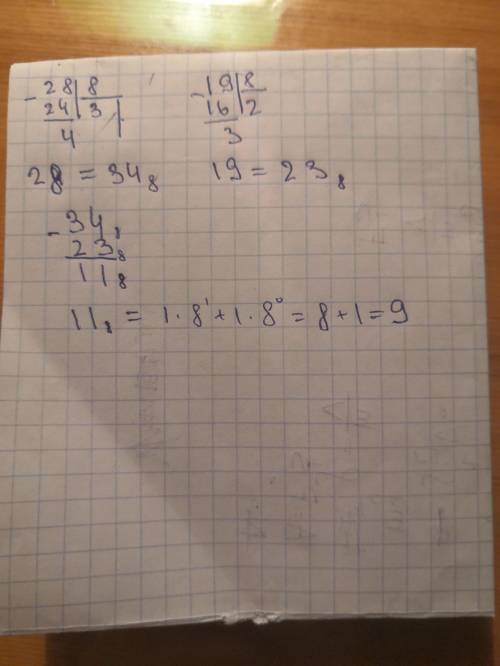 - 28 | 8 - 19 | 8
24 | 3 16 | 2
4 3
28 = 34₈ 19 = 23₈
- 34₈
23₈
11₈
11₈ = 1 · 8¹ + 1 · 8⁰ = 8 + 1 = 9